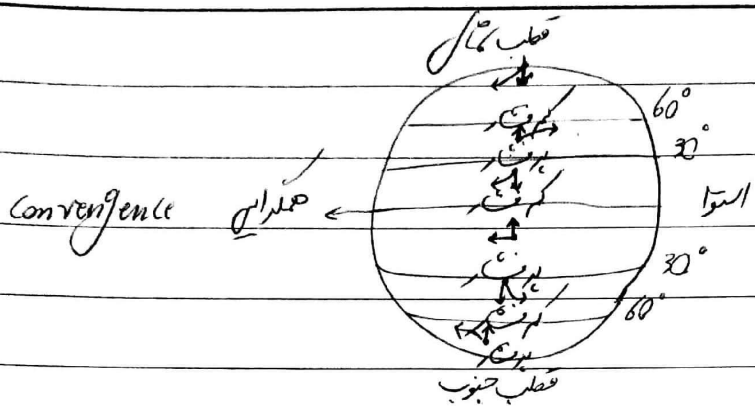 قطب شمال
60°
کم فشار
30°
پر فشار
convergence همگرایی
کم فشار
استوا
پر فشار
30°
کم فشار
60°
پر فشار
قطب جنوب